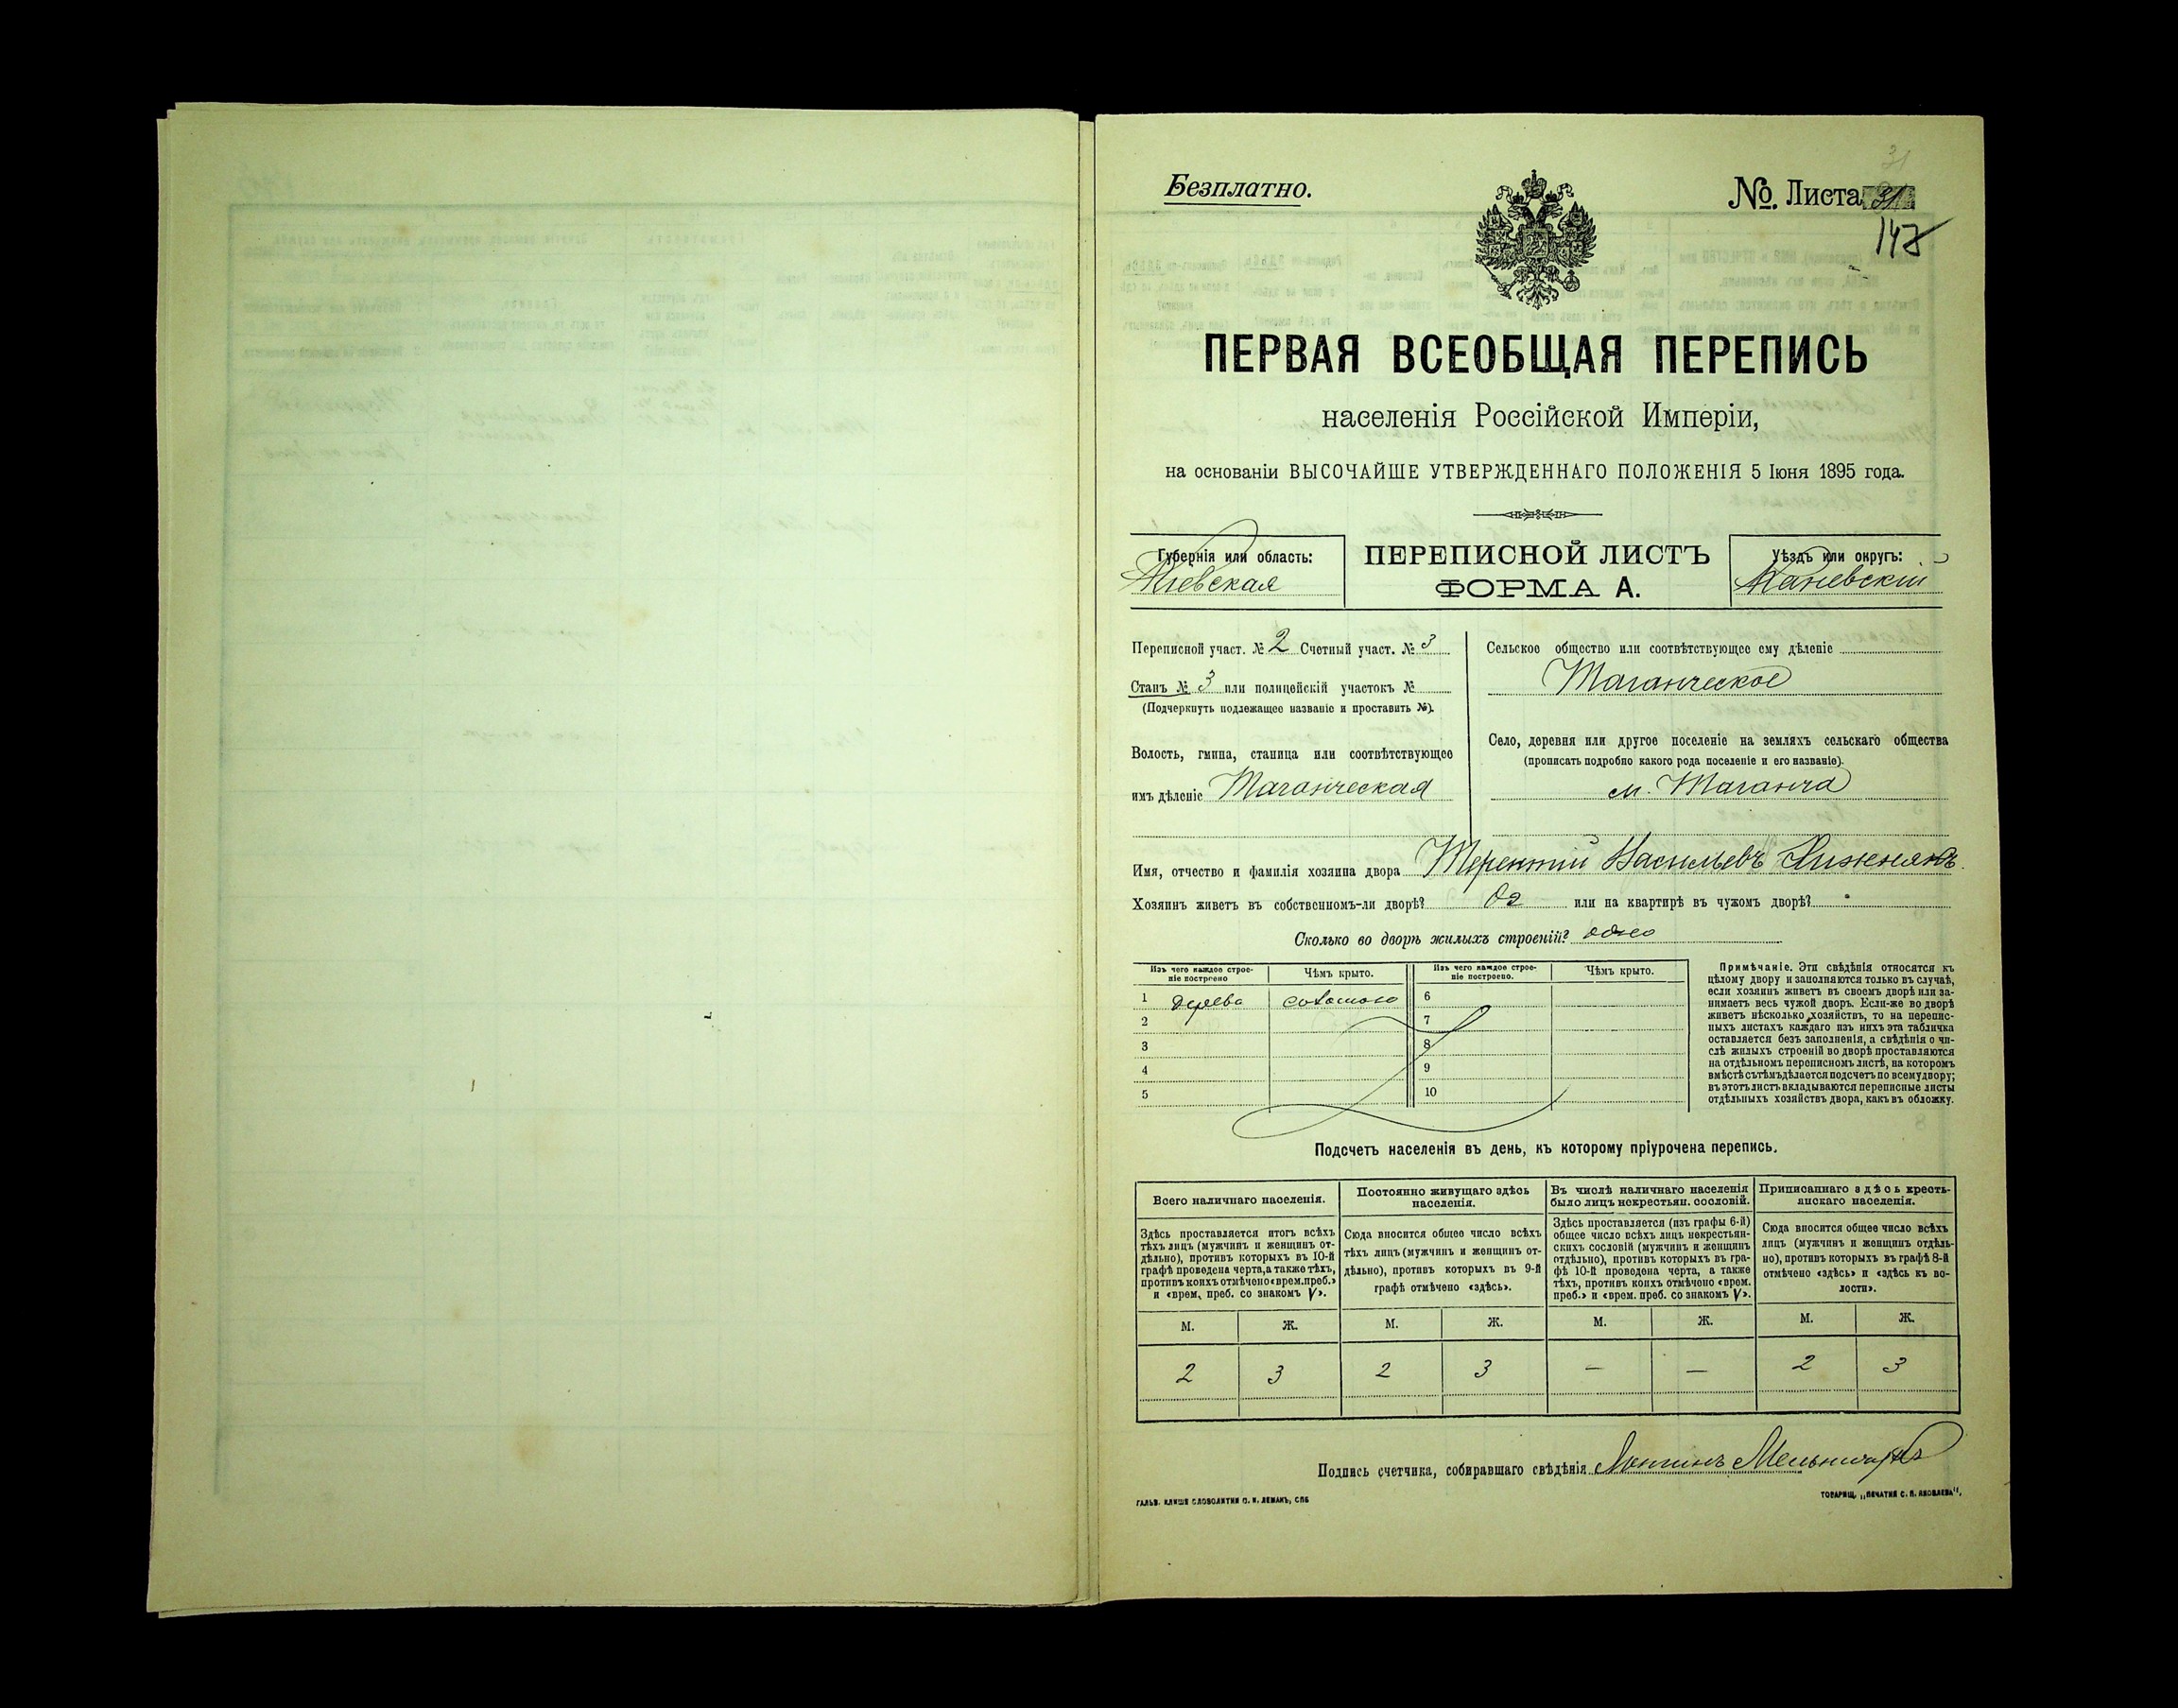 Безплатно.
№ Листа 31
31
147
ПЕРВАЯ ВСЕОБЩАЯ ПЕРЕПИСЬ
населенія Россійской Имперіи,
на основаніи ВЫСОЧАЙШЕ УТВЕРЖДЕННАГО ПОЛОЖЕНІЯ 5 Іюня 1895 года.
Губернія или область:
Кіевская
ПЕРЕПИСНОЙ ЛИСТЪ
ФОРМА А.
Уѣздъ или округъ:
Каневскій
Переписной участ. № 2 Счетный участ. № 3
Станъ № 3 или полицейскій участокъ №
(Подчеркнуть подлежащее названіе и проставить №).
Волость, гмина, станица или соотвѣтствующее
имъ дѣленіе Таганческая
Сельское общество или соотвѣтствующее ему дѣленіе
Таганческое
Село, деревня или другое поселеніе на земляхъ сельскаго общества
(прописать подробно какого рода поселеніе и его названіе).
м. Таганча
Имя, отчество и фамилія хозяина двора Терентій Васильевъ
Хозяинъ живетъ въ собственномъ-ли дворѣ? Да или на квартирѣ въ чужомъ дворѣ?
Сколько во дворѣ жилыхъ строеній? одно
Изъ чего каждое строе-
ніе построено
Чѣмъ крыто.
Изъ чего каждое строе-
ніе построено.
Чѣмъ крыто.
1 дерева соломою 6
2 7
3 8
4 9
5 10
Примѣчаніе. Эти свѣдѣнія относятся къ
цѣлому двору и заполняются только въ случаѣ,
если хозяинъ живетъ въ своемъ дворѣ или за-
нимаетъ весь чужой дворъ. Если-же во дворѣ
живетъ нѣсколько хозяйствъ, то на перепис-
ныхъ листахъ каждаго изъ нихъ эта табличка
оставляется безъ заполненія, а свѣдѣнія о чи-
слѣ жилыхъ строеній во дворѣ проставляются
на отдѣльномъ переписномъ листѣ, на которомъ
вмѣстѣ съ тѣмъ дѣлается подсчетъ по всему двору;
въ этотъ листъ вкладываются переписные листы
отдѣльныхъ хозяйствъ двора, какъ въ обложку.
Подсчетъ населенія въ день, къ которому пріурочена перепись.
Всего наличнаго населенія.
Постоянно живущаго здѣсь
населенія.
Въ числѣ наличнаго населенія
было лицъ некрестьян. сословій.
Приписаннаго здѣсь кресть-
янскаго населенія.
Здѣсь проставляется итогъ всѣхъ
тѣхъ лицъ (мужчинъ и женщинъ от-
дѣльно), противъ которыхъ въ 10-й
графѣ проведена черта, а также тѣхъ,
противъ коихъ отмѣчено «врем. преб.»
и «врем. преб. со знакомъ V».
Сюда вносится общее число всѣхъ
тѣхъ лицъ (мужчинъ и женщинъ от-
дѣльно), противъ которыхъ въ 9-й
графѣ отмѣчено «здѣсь».
Здѣсь проставляется (изъ графы 6-й)
общее число всѣхъ лицъ некрестьян-
скихъ сословій (мужчинъ и женщинъ
отдѣльно), противъ которыхъ въ гра-
фѣ 10-й проведена черта, а также
тѣхъ, противъ коихъ отмѣчено «врем.
преб.» и «врем. преб. со знакомъ V».
Сюда вносится общее число всѣхъ
лицъ (мужчинъ и женщинъ отдѣль-
но), противъ которыхъ въ графѣ 8-й
отмѣчено «здѣсь» и «здѣсь къ во-
лости».
М. Ж. М. Ж. М. Ж. М. Ж.
2 3 2 3 — — 2 3
Подпись счетчика, собиравшаго свѣдѣнія
ГАЛЬВ. КЛИШЕ СЛОВОЛИТНИ О. И. ЛЕМАНЪ, СПБ
ТОВАРИЩ. „ПЕЧАТНЯ С. П. ЯКОВЛЕВА“,